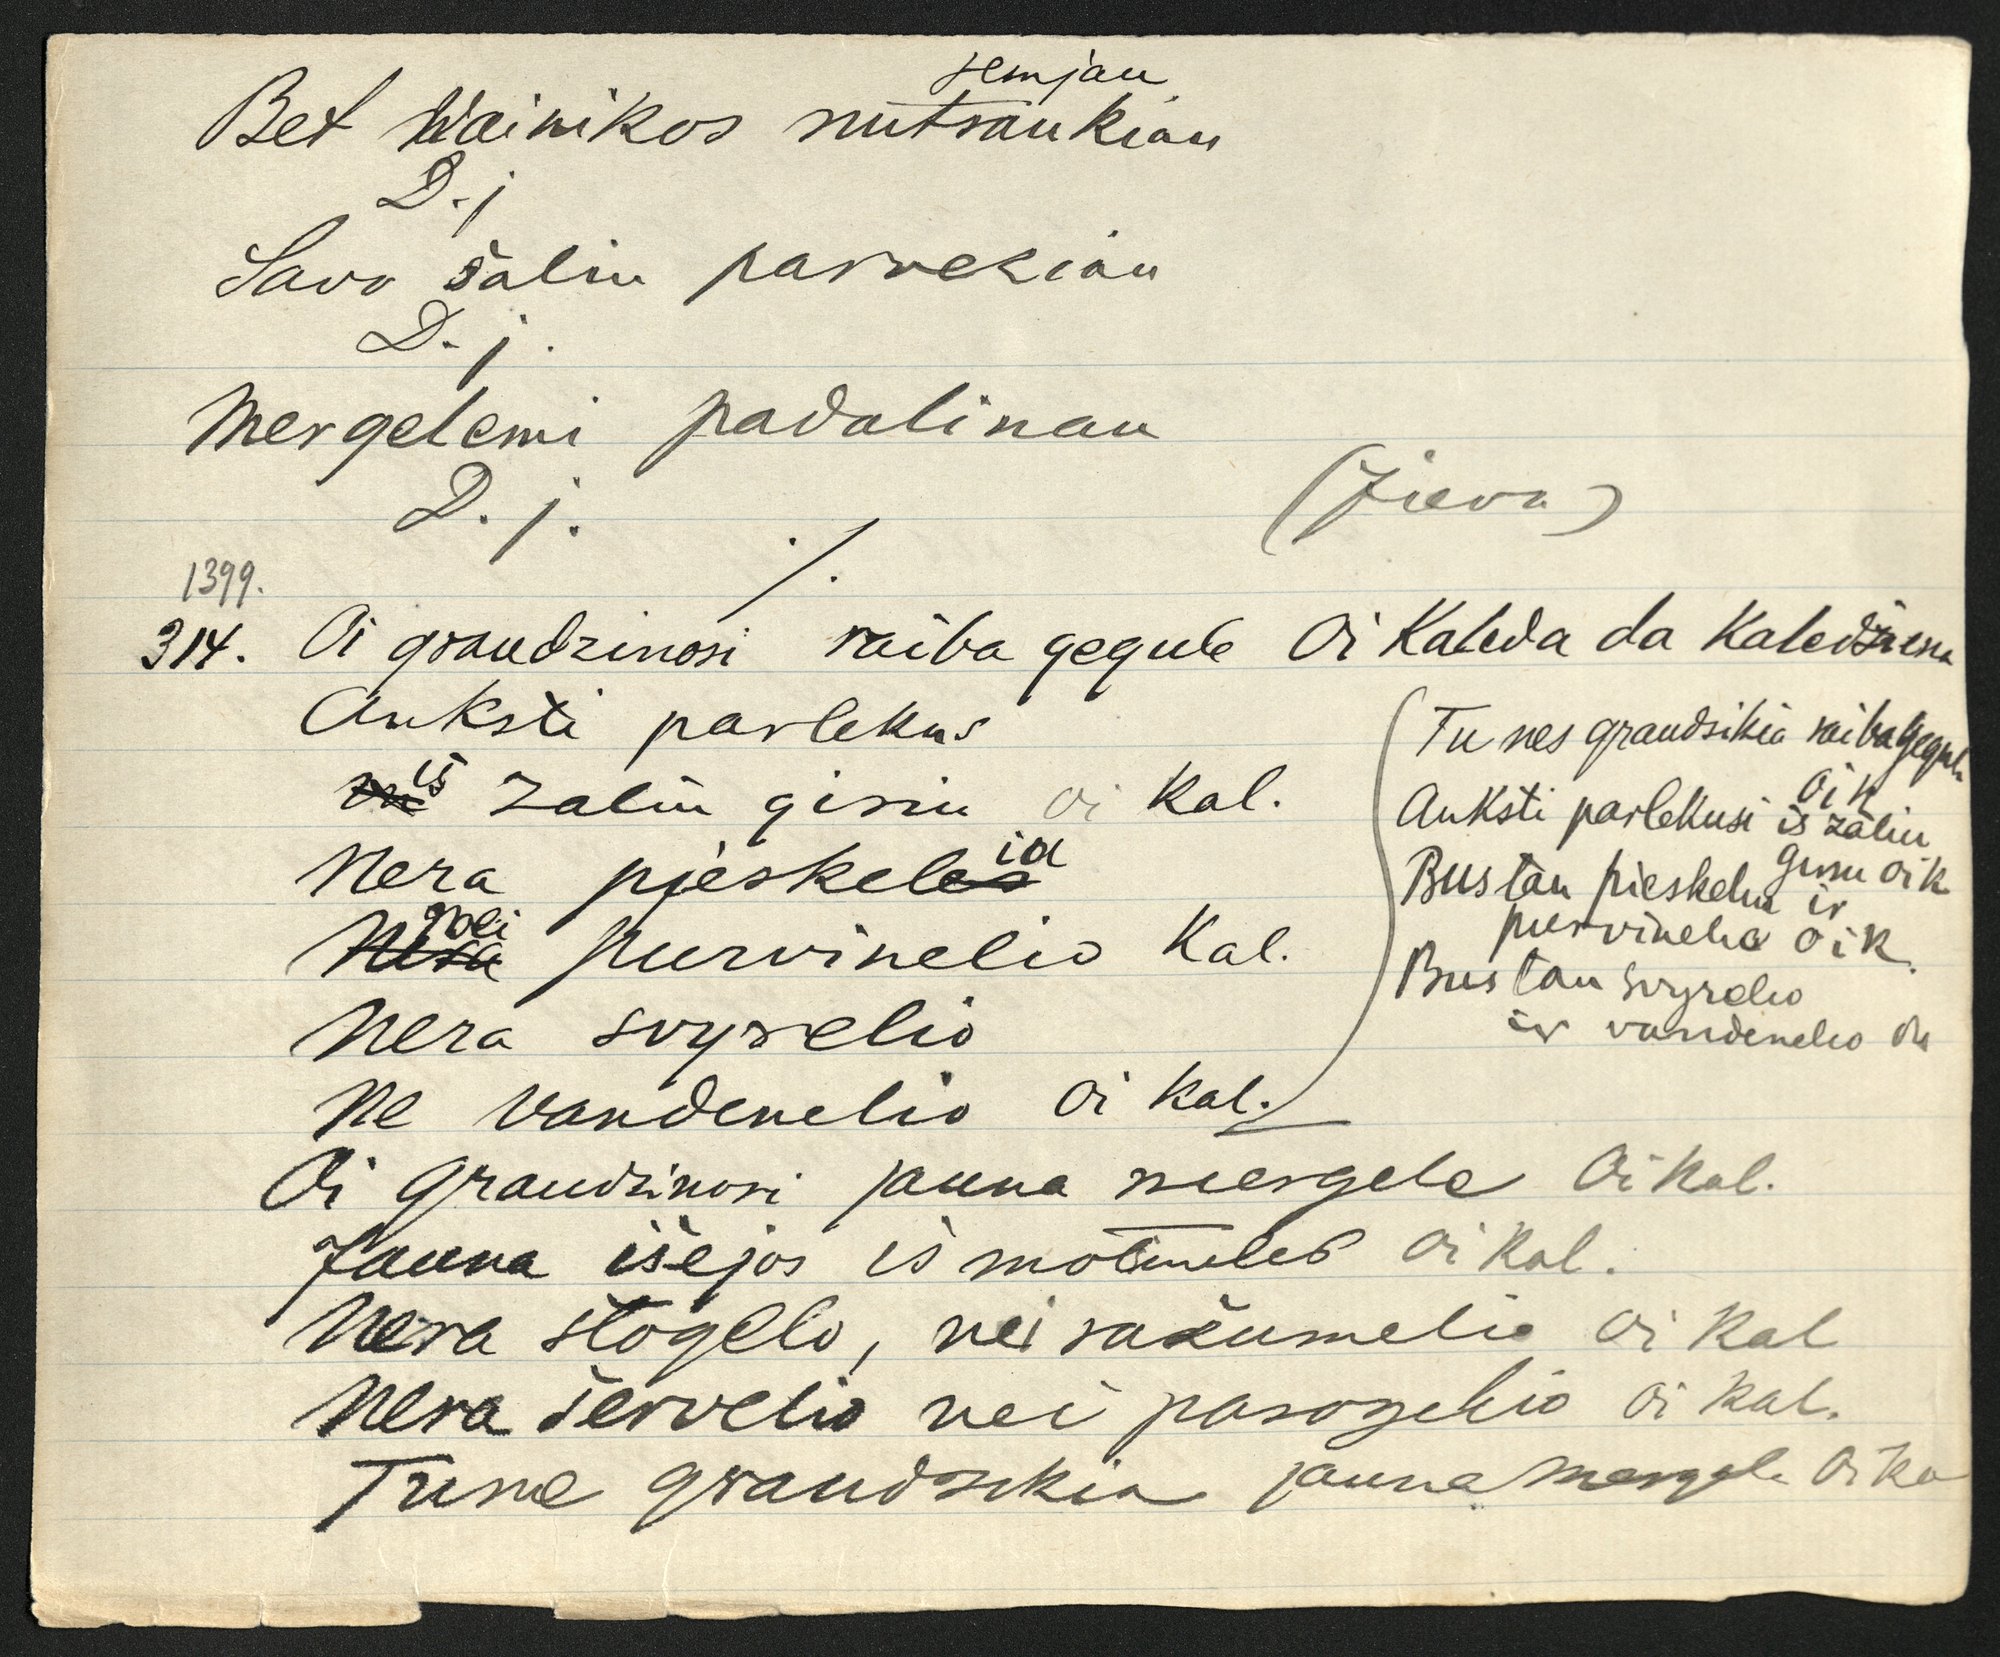 semjau
Bet Wainikos nutraukiau
D. j
Savo šaliu parvežiau
D. j.
Mergelemi padalinau
D. j. (Jieva)
./.
1399.
314. Oi graudzinosi raiba gegule Oi Kaleda da Kaledžiena
Auksti parlekus
iš zaliu giriu oi kal.
Nera pjeskelia
nei purvinelio Kal.
Nera svyrelio
Ne vandenelio oi kal.
(Tu nes graudsikia raiba gegule
oi k
Auksti parlekusi is zaliu
giriu oi k
Bustau pieskeliu ir
purvinelio oi k.
Bustau svyrelio
ir vandenelio
Oi graudzinosi jauna mergele Oi kal.
Jauna išejos iš motineles oi kal.
Nera stogelo, neiražumelio oi kal
Nera šervelio nei parogelio oi kal.
Tu ne graudzikia jauna mergele oi ka